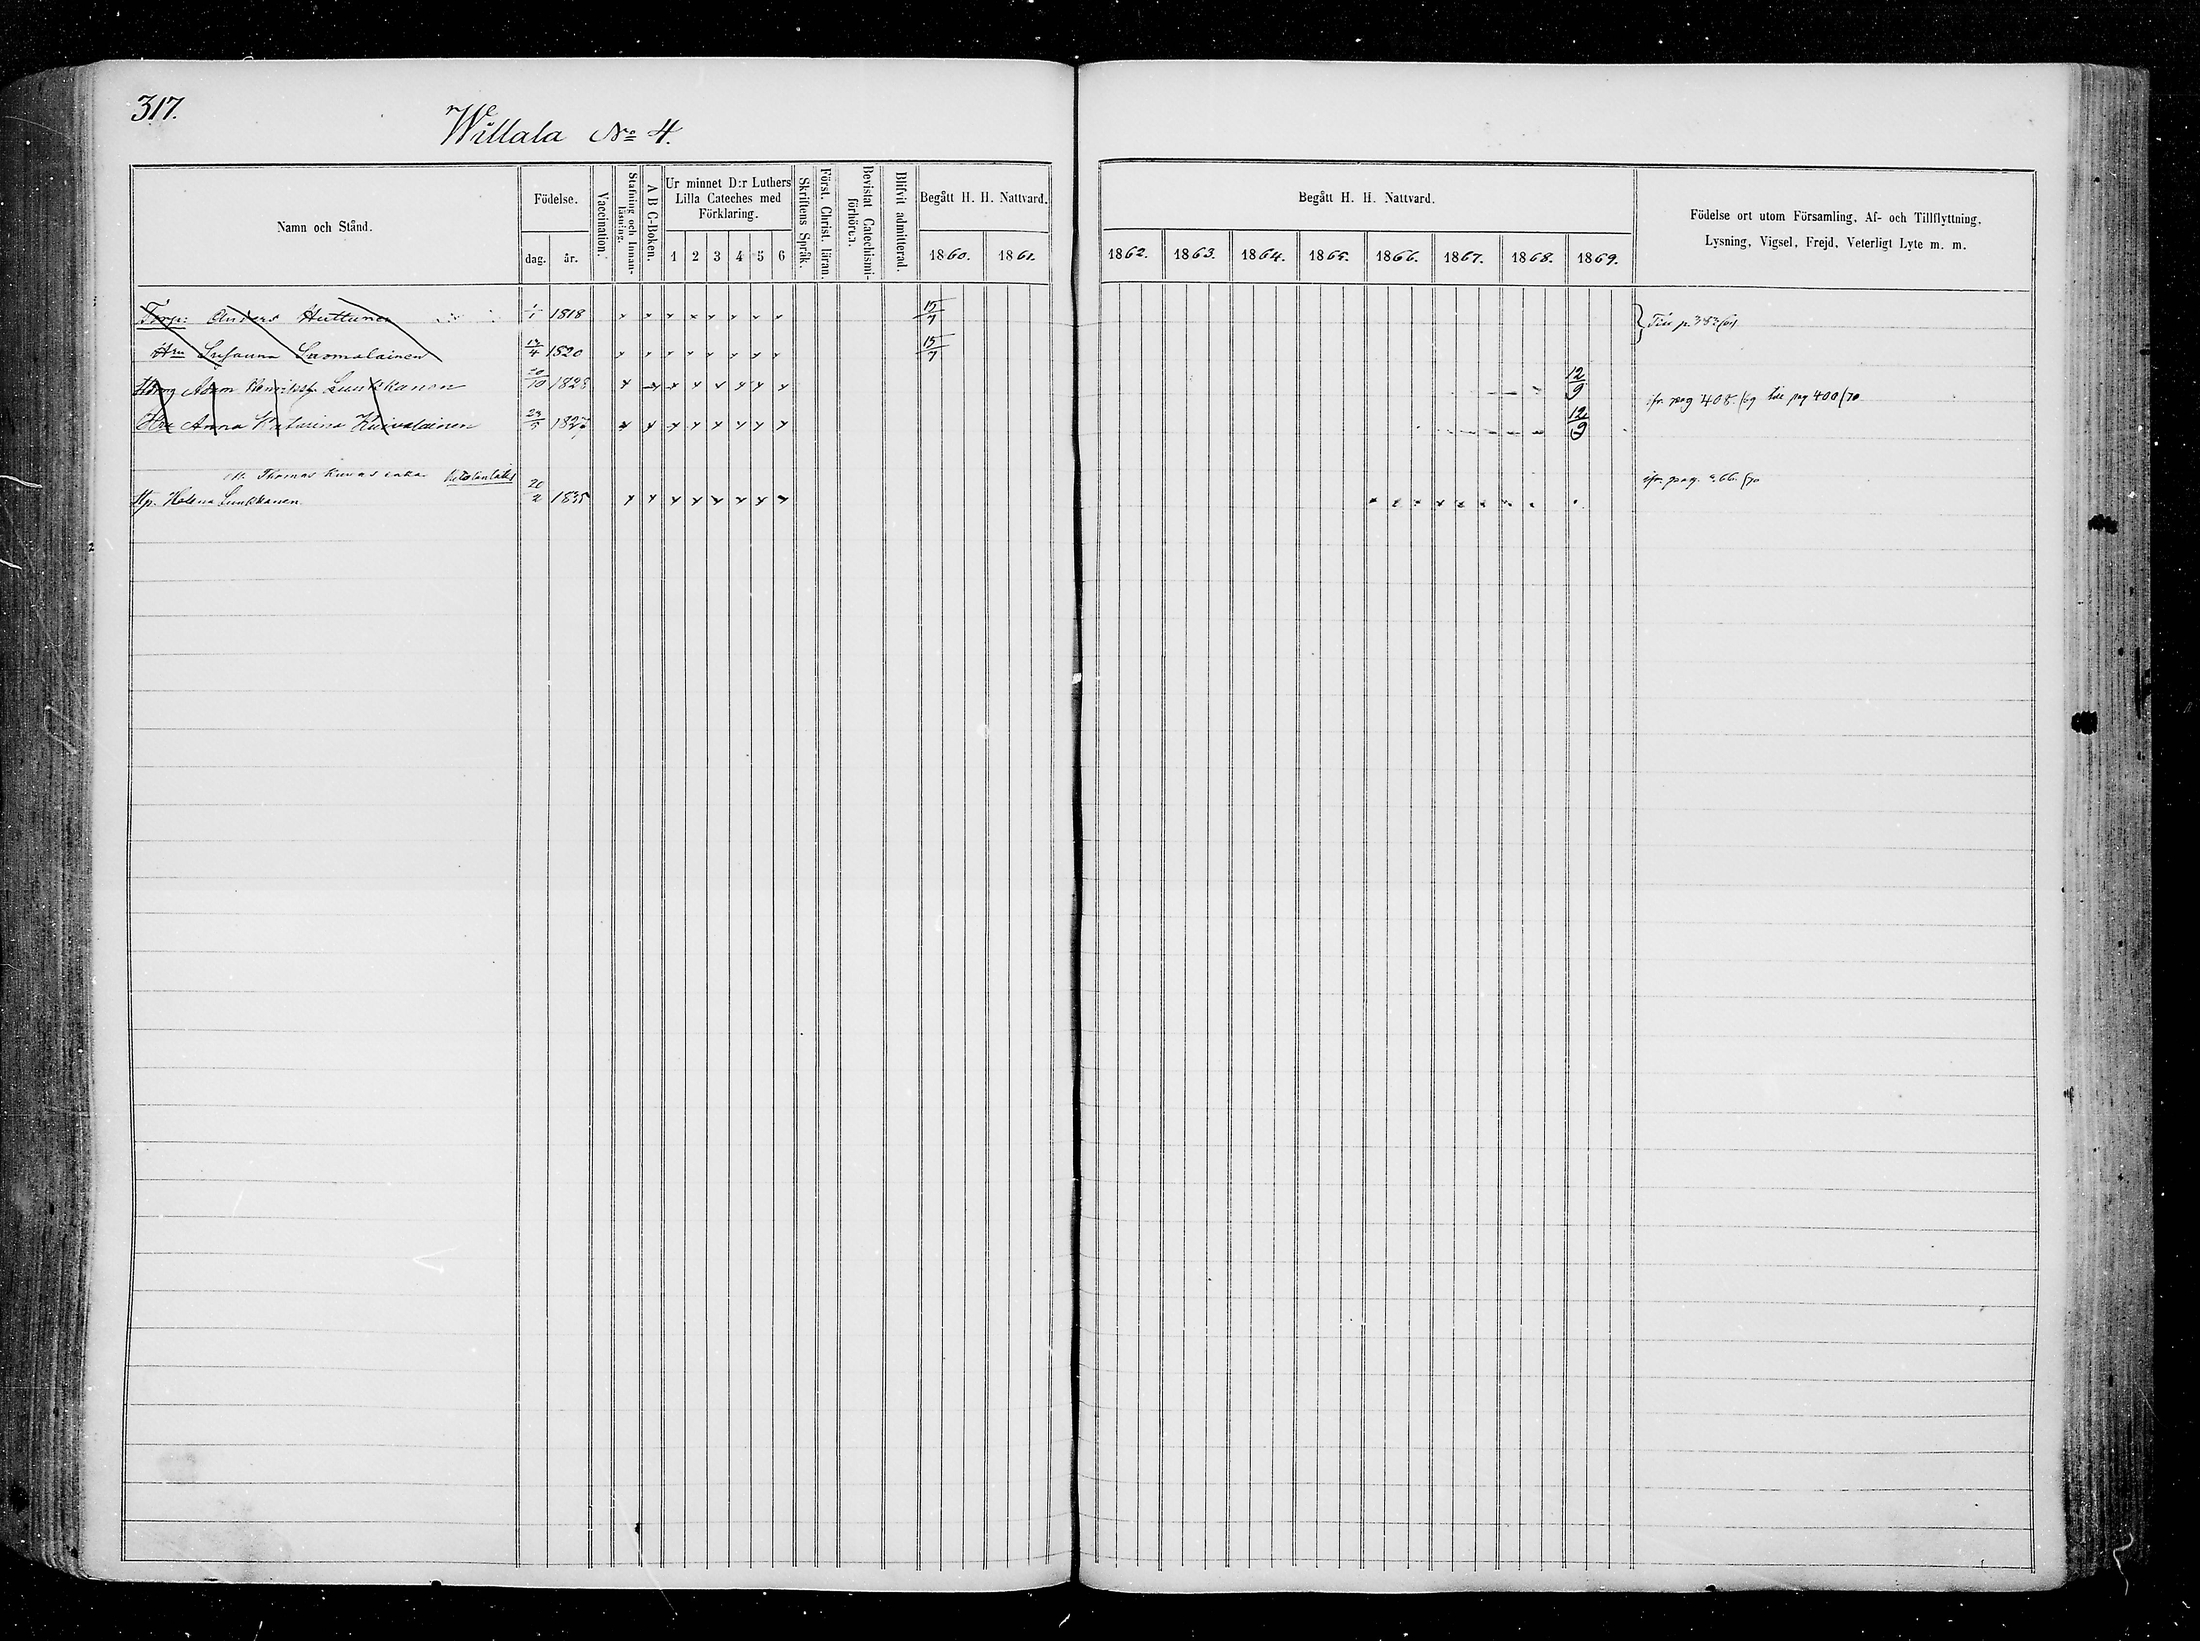 317.
Willala No 4.
Namn och Stånd.
Födelse.
dag.
år.
Vaccination.
Stafning och Innanläsning.
A B C-Boken.
Ur minnet D:r Luthers Lilla Cateches med Förklaring.
1 2 3 4 5 6
Skriftens Språk.
Först. Christ. läran.
Bevistat Catechismiförhören.
Blifvit admitterad.
Begått H. H. Nattvard.
1860. 1861.
Begått H. H. Nattvard.
1862. 1863. 1864. 1865. 1866. 1867. 1868. 1869.
Födelse ort utom Församling, Af- och Tillflyttning,
Lysning, Vigsel, Frejd, Veterligt Lyte m. m.
Torp: Anders Huttunen 1/1 1818 x x x x x x x x 15/7
Hu Susanna Suomalainen 13/4 1820 x x x x x x x x 15/7
Adam Henriksp. Luukkanen 20/10 1828 x x x x x x x x 12/9 ifr. pag 408. /69 tde pag 400/70
Hu Anna Katarina Kuivalainen 23/5 x x x x x x x x 12/9
Thomas
Helena Luukkanen. 20/2 1835 x x x x x x x x ifr. pag. /70